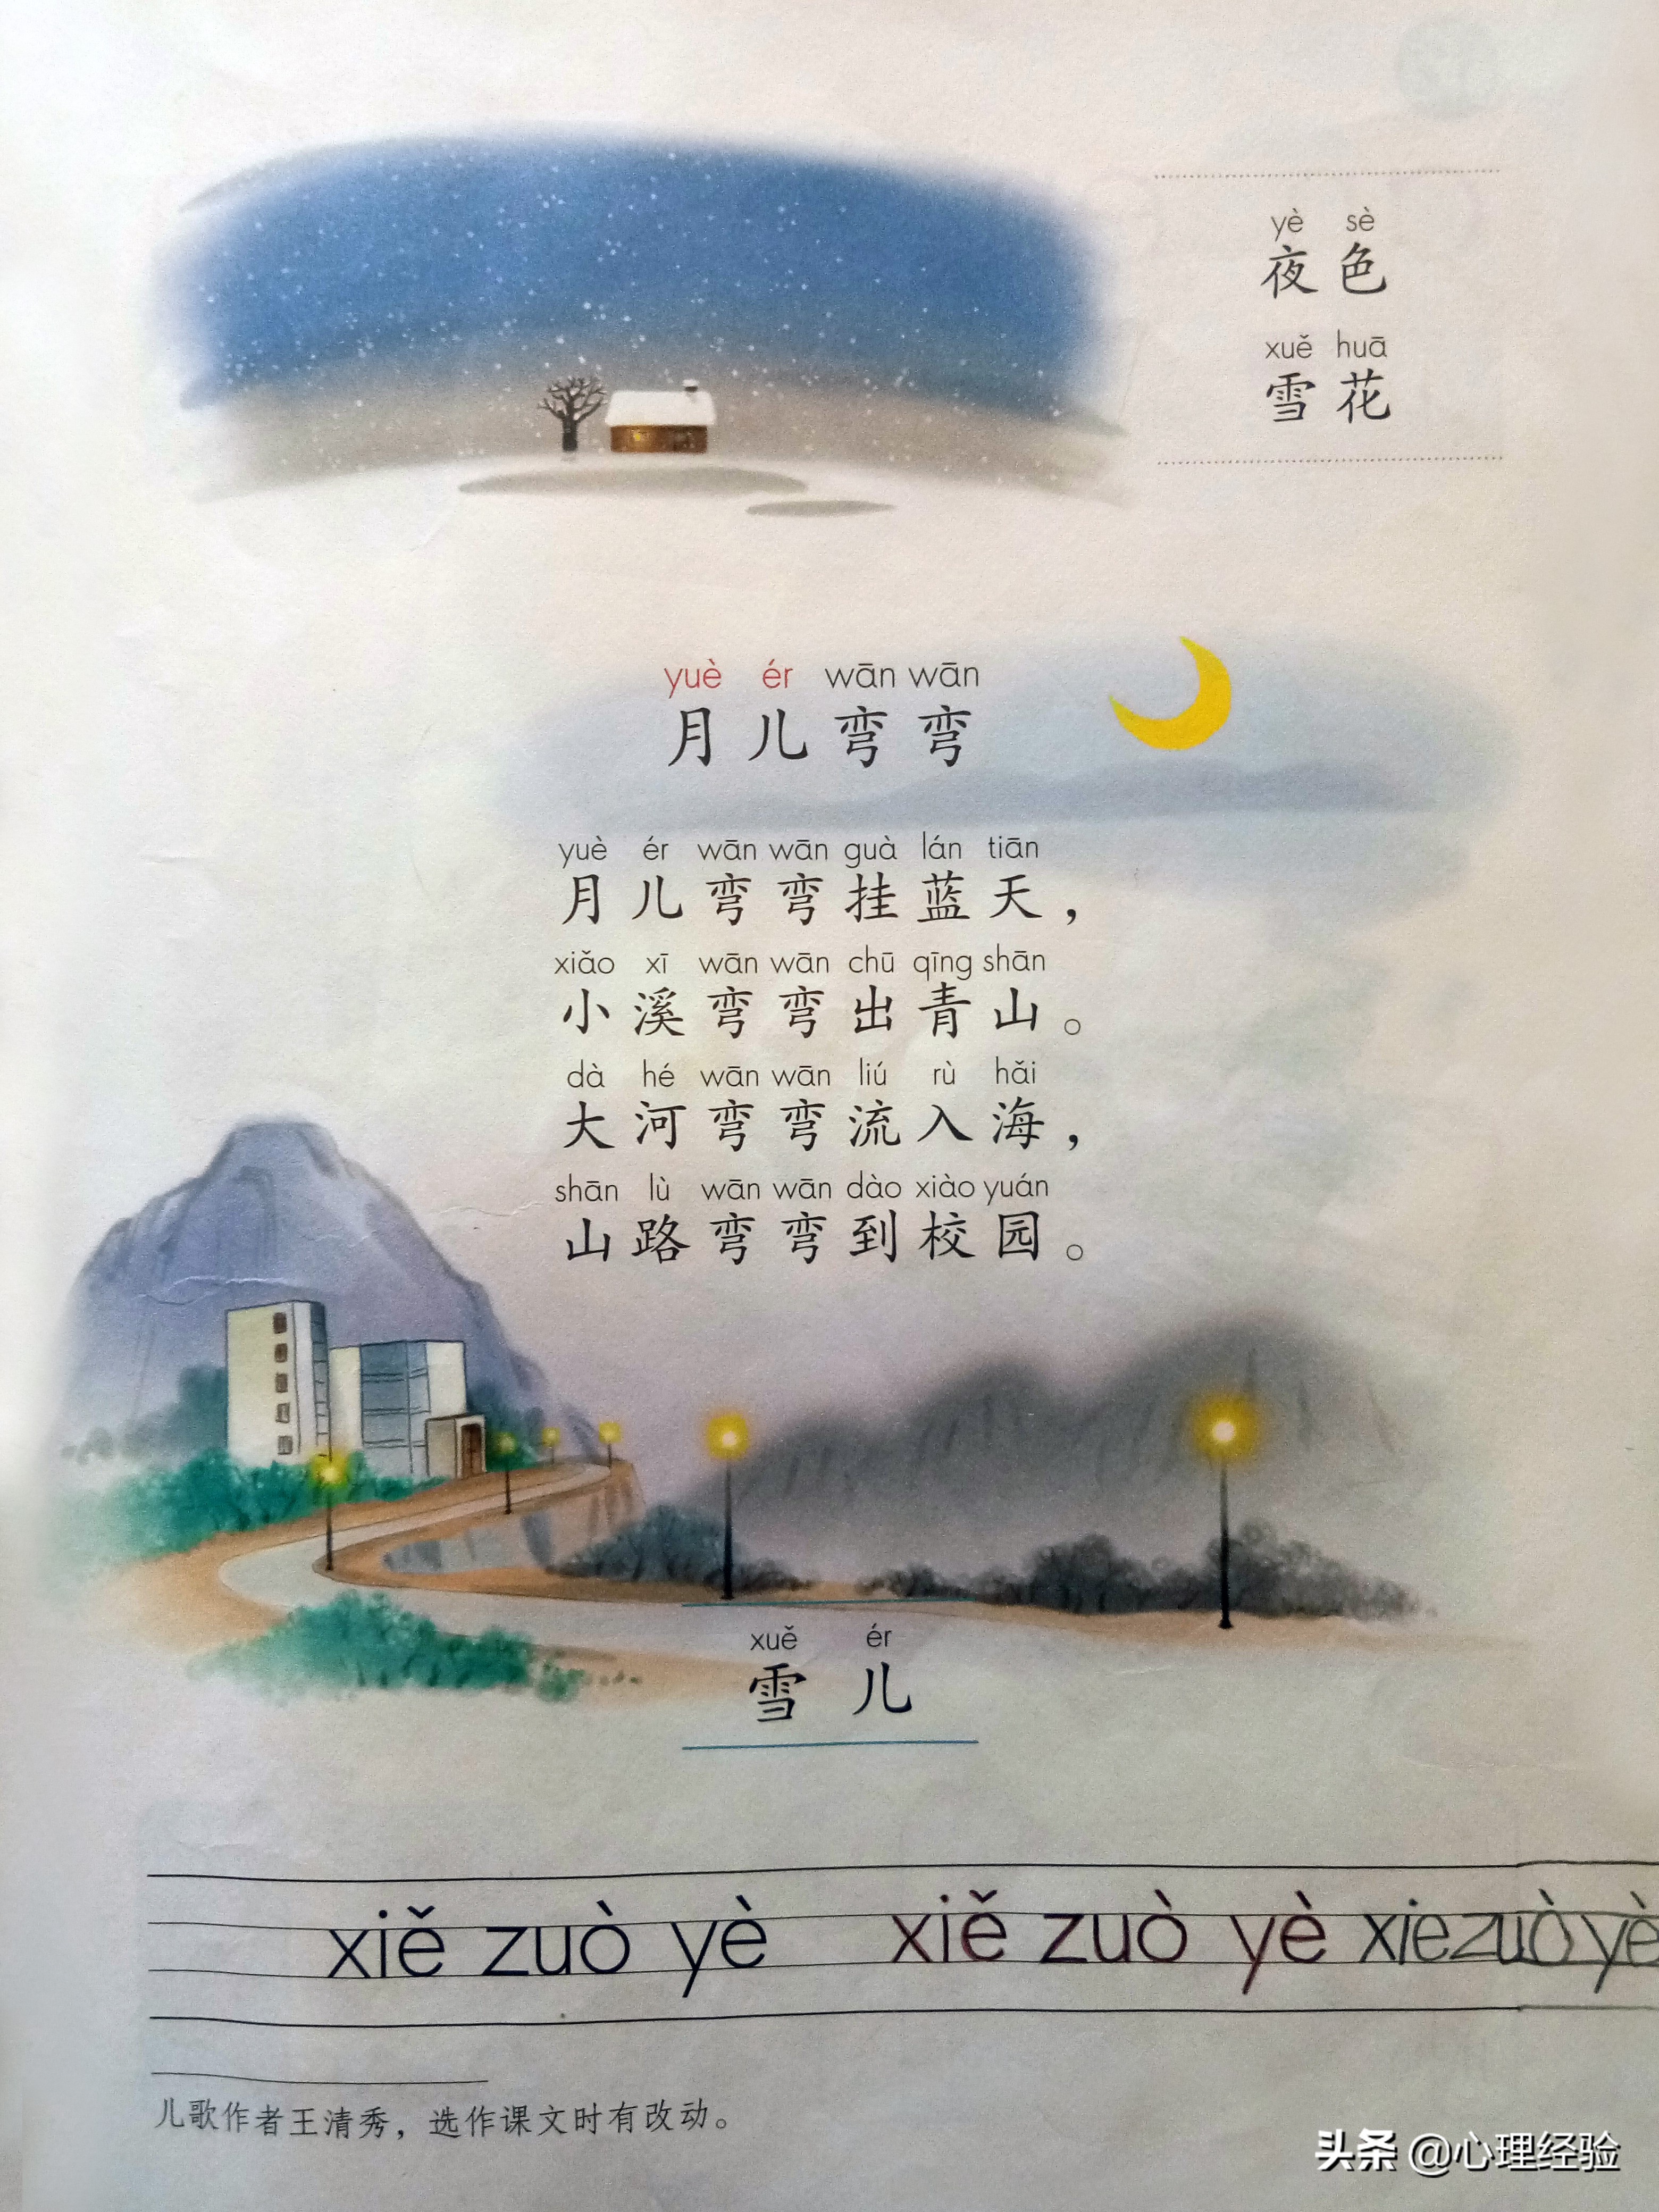 yè sè
夜色
xuě huā
雪花
yuè ér wān wān
月儿弯弯
yuè ér wān wān guà lán tiān
月儿弯弯挂蓝天，
xiǎo xī wān wān chū qīng shān
小溪弯弯出青山。
dà hé wān wān liú rù hǎi
大河弯弯流入海，
shān lù wān wān dào xiào yuán
山路弯弯到校园。
xuě ér
雪儿
xiě zuò yè xiě zuò yè xiezuò yè
儿歌作者王清秀，选作课文时有改动。
头条 @心理经验